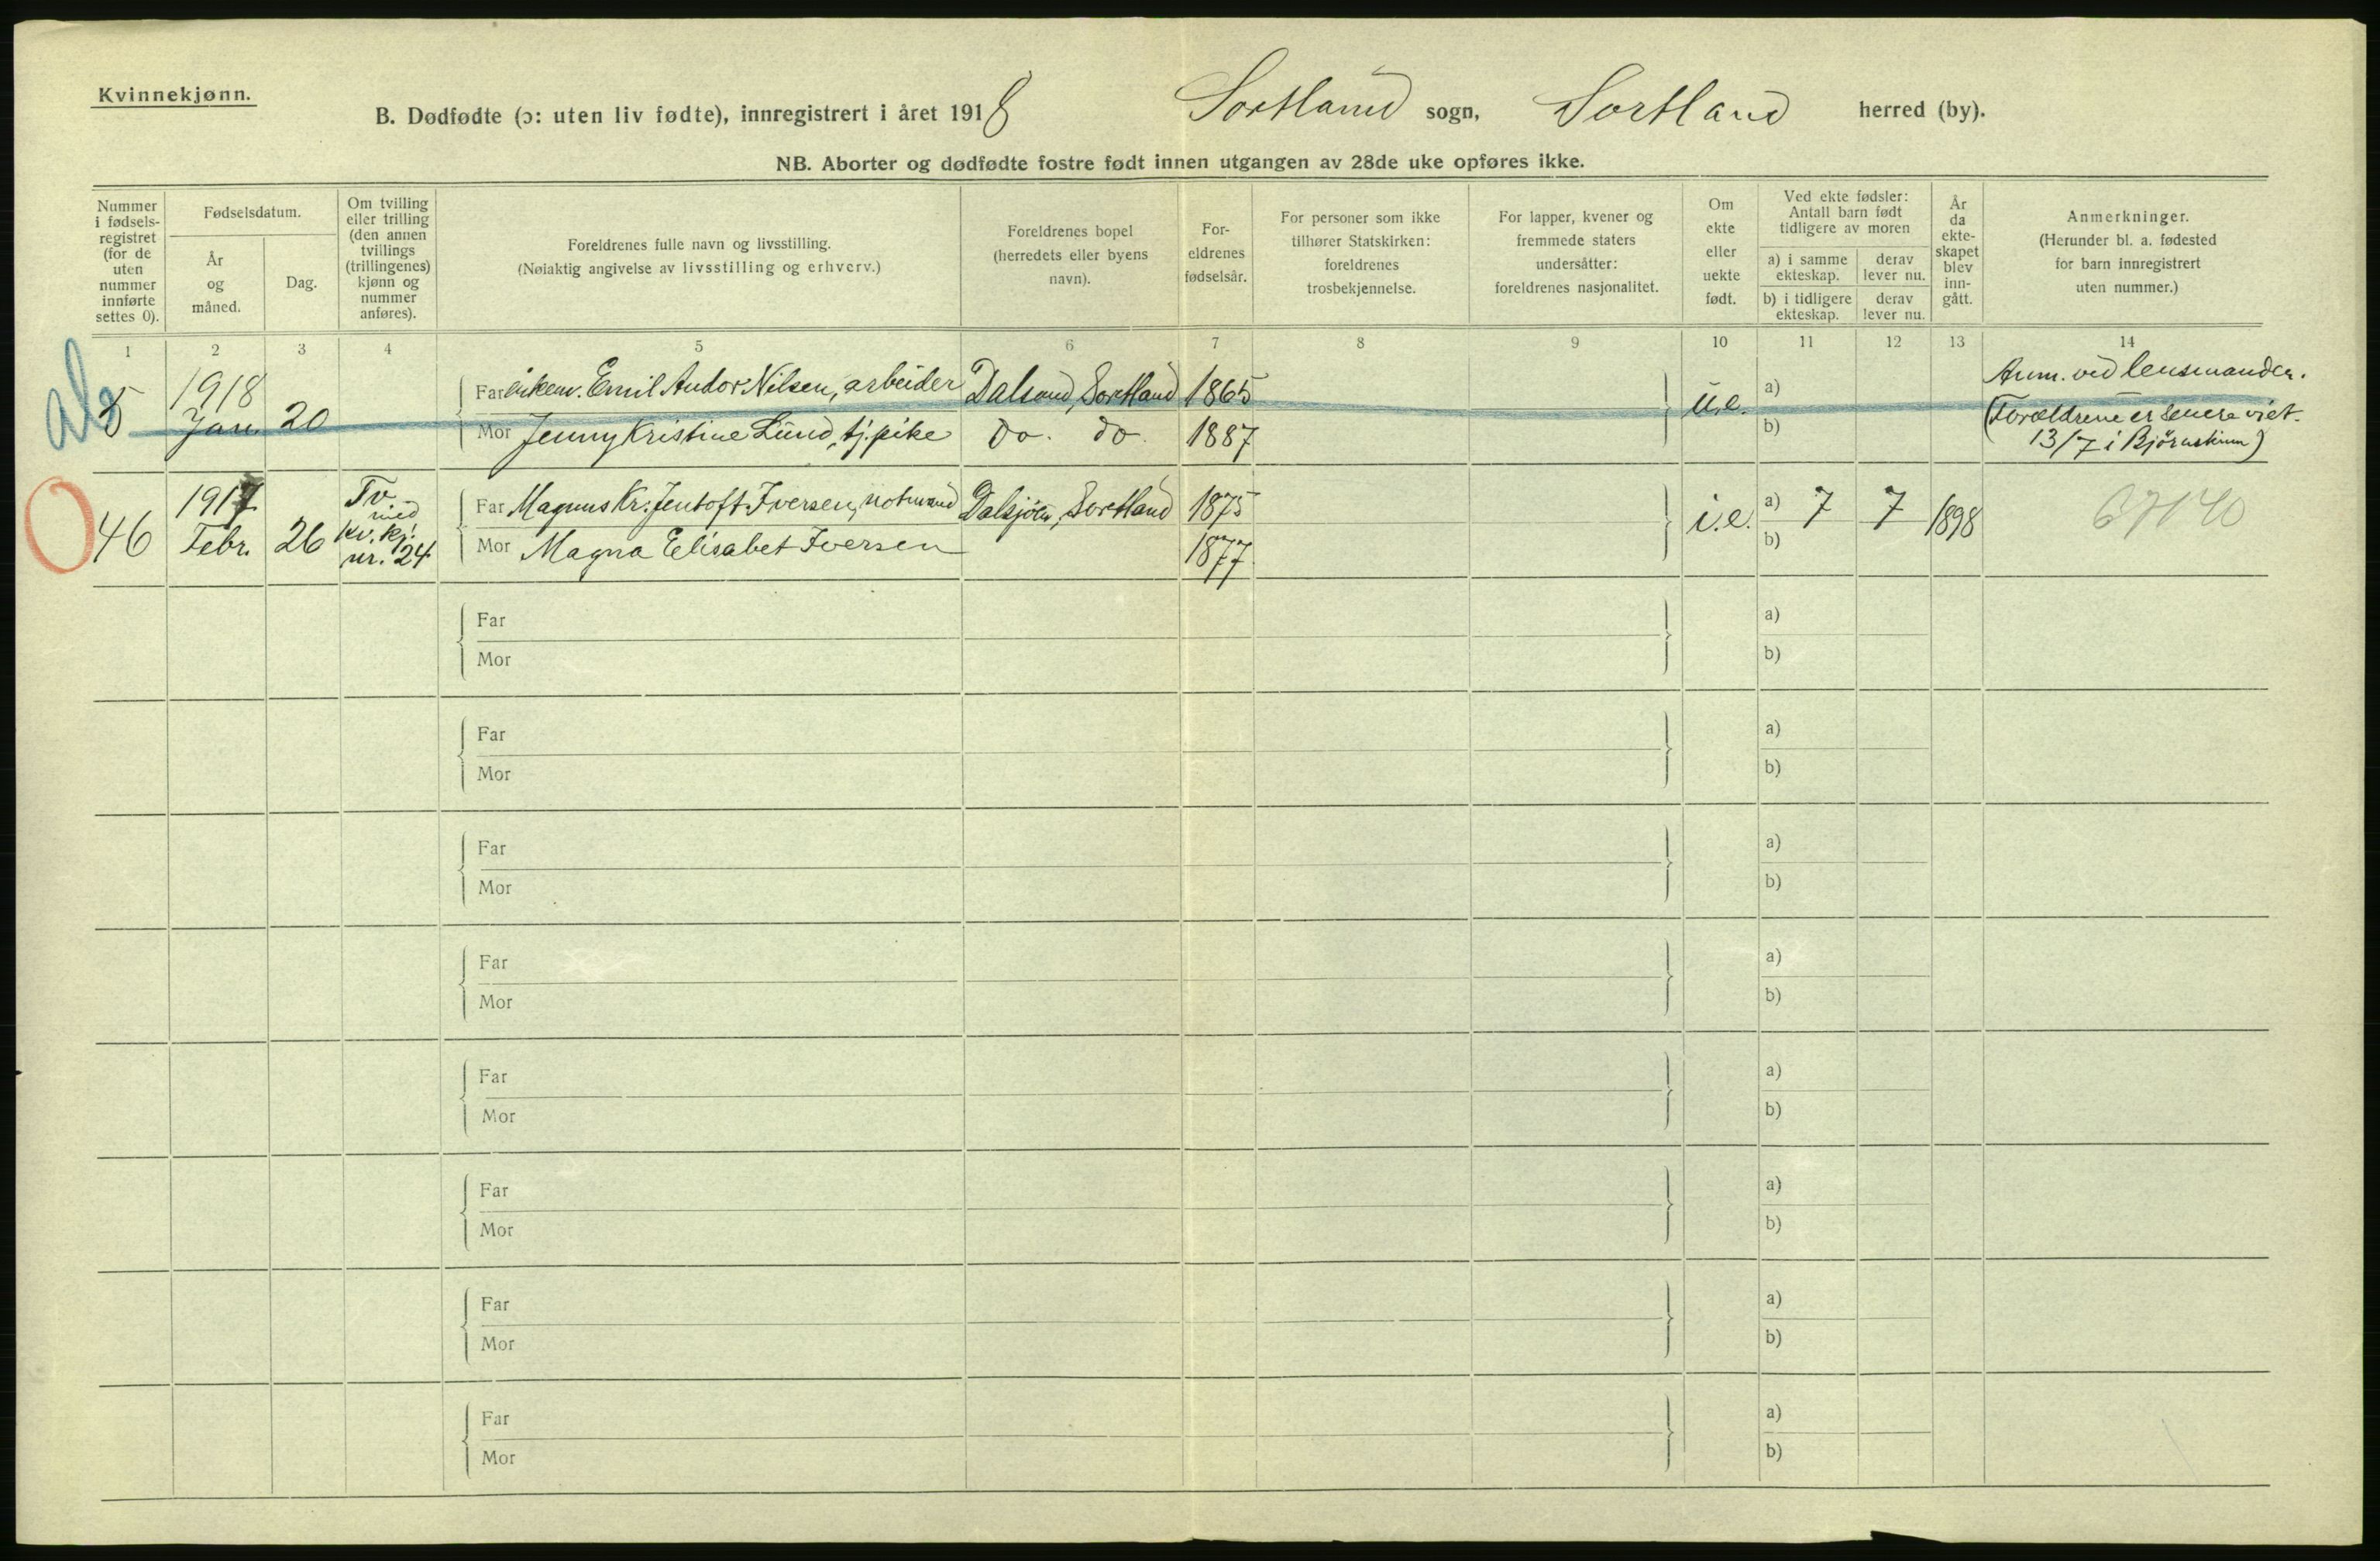 Kvinnekjønn.
B. Dødfødte (ɔ: uten liv fødte), innregistrert i året 1918 Sortland sogn, Sortland herred (by).
NB. Aborter og dødfødte fostre født innen utgangen av 28de uke opføres ikke.
Nummer
i fødsels-
registret
(for de
uten
nummer
innførte
settes 0).
Fødselsdatum.
År
og
måned.
Dag.
Om tvilling
eller trilling
(den annen
tvillings
(trillingenes)
kjønn og
nummer
anføres).
Foreldrenes fulle navn og livsstilling.
(Nøiaktig angivelse av livsstilling og erhverv.)
Foreldrenes bopel
(herredets eller byens
navn).
For-
eldrenes
fødselsår.
For personer som ikke
tilhører Statskirken:
foreldrenes
trosbekjennelse.
For lapper, kvener og
fremmede staters
undersåtter:
foreldrenes nasjonalitet.
Om
ekte
eller
uekte
født.
Ved ekte fødsler:
Antall barn født
tidligere av moren
a) i samme
ekteskap.
derav
lever nu.
b) i tidligere
ekteskap.
derav
lever nu.
År
da
ekte-
skapet
blev
inn-
gått.
Anmerkninger.
(Herunder bl. a. fødested
for barn innregistrert
uten nummer.)
1 2 3 4 5 6 7 8 9 10 11 12 13 14
5
1918
Jan. 20
Far enkem. Emil Andor Nilsen, arbeider Dalsand, Sortland 1865
Mor Jenny Kristine Lund, tj. pike do. do. 1887
u.e.
a)
b)
Anm. ved lensmanden.
(Forældrene er senere viet
13/7 i Bjørnskinn)
46
1917
Febr. 26
Tv.
med
kv. kj.
nr. 24
Far Magnus Kr. Jentoft Iversen, notmand Dalsjöen, Sortland 1875
Mor Magna Elisabet Iversen 1877
i.e.
a) 7 7 1898
b)
67140
Far
Mor
a)
b)
Far
Mor
a)
b)
Far
Mor
a)
b)
Far
Mor
a)
b)
Far
Mor
a)
b)
Far
Mor
a)
b)
Far
Mor
a)
b)
Far
Mor
a)
b)